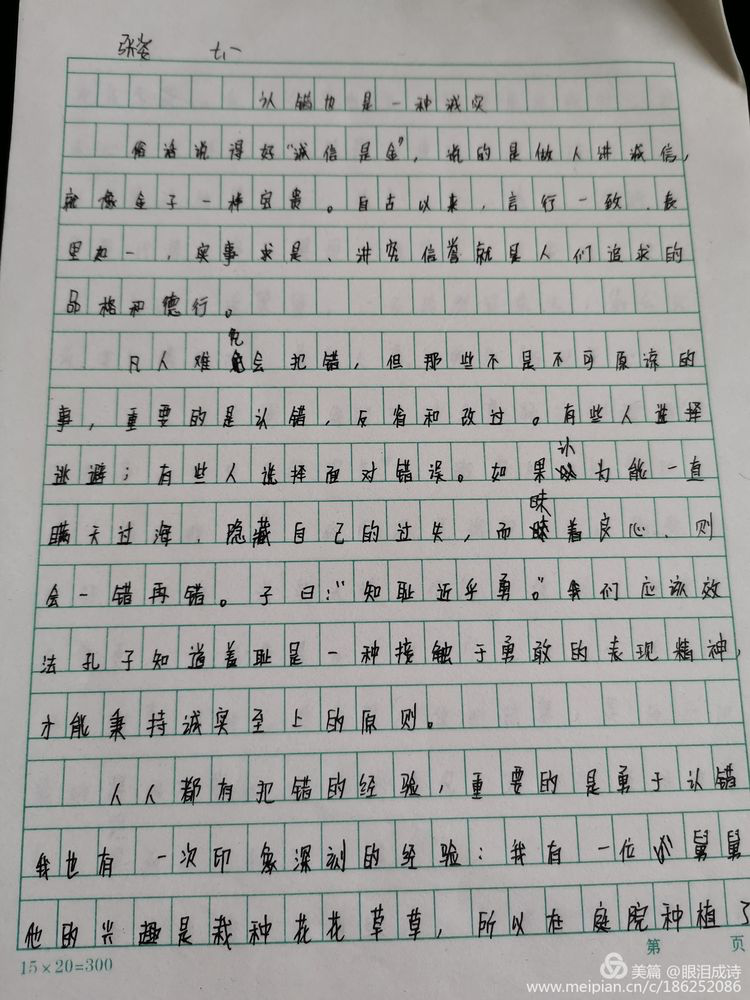 张姿 七一
认错也是一种诚实
俗话说得好"诚信是金"，说的是做人讲诚信，
就像金子一样宝贵。自古以来，言行一致、表
里如一，实事求是、讲究信誉就是人们追求的
品格和德行。
凡人难免会犯错，但那些不是不可原谅的
事，重要的是认错，反省和改过。有些人选择
逃避；有些人选择面对错误。如果认为能一直
瞒天过海、隐藏自己的过失，而昧着良心、则
会一错再错。子曰："知耻近乎勇。"我们应该效
法孔子知道羞耻是一种接触于勇敢的表现精神，
才能秉持诚实至上的原则。
人人都有犯错的经验，重要的是勇于认错
我也有一次印象深刻的经验：我有一位小舅舅
他的兴趣是栽种花花草草，所以在庭院种植了
第 页
15×20=300
美篇 @眼泪成诗
www.meipian.cn/c/186252086